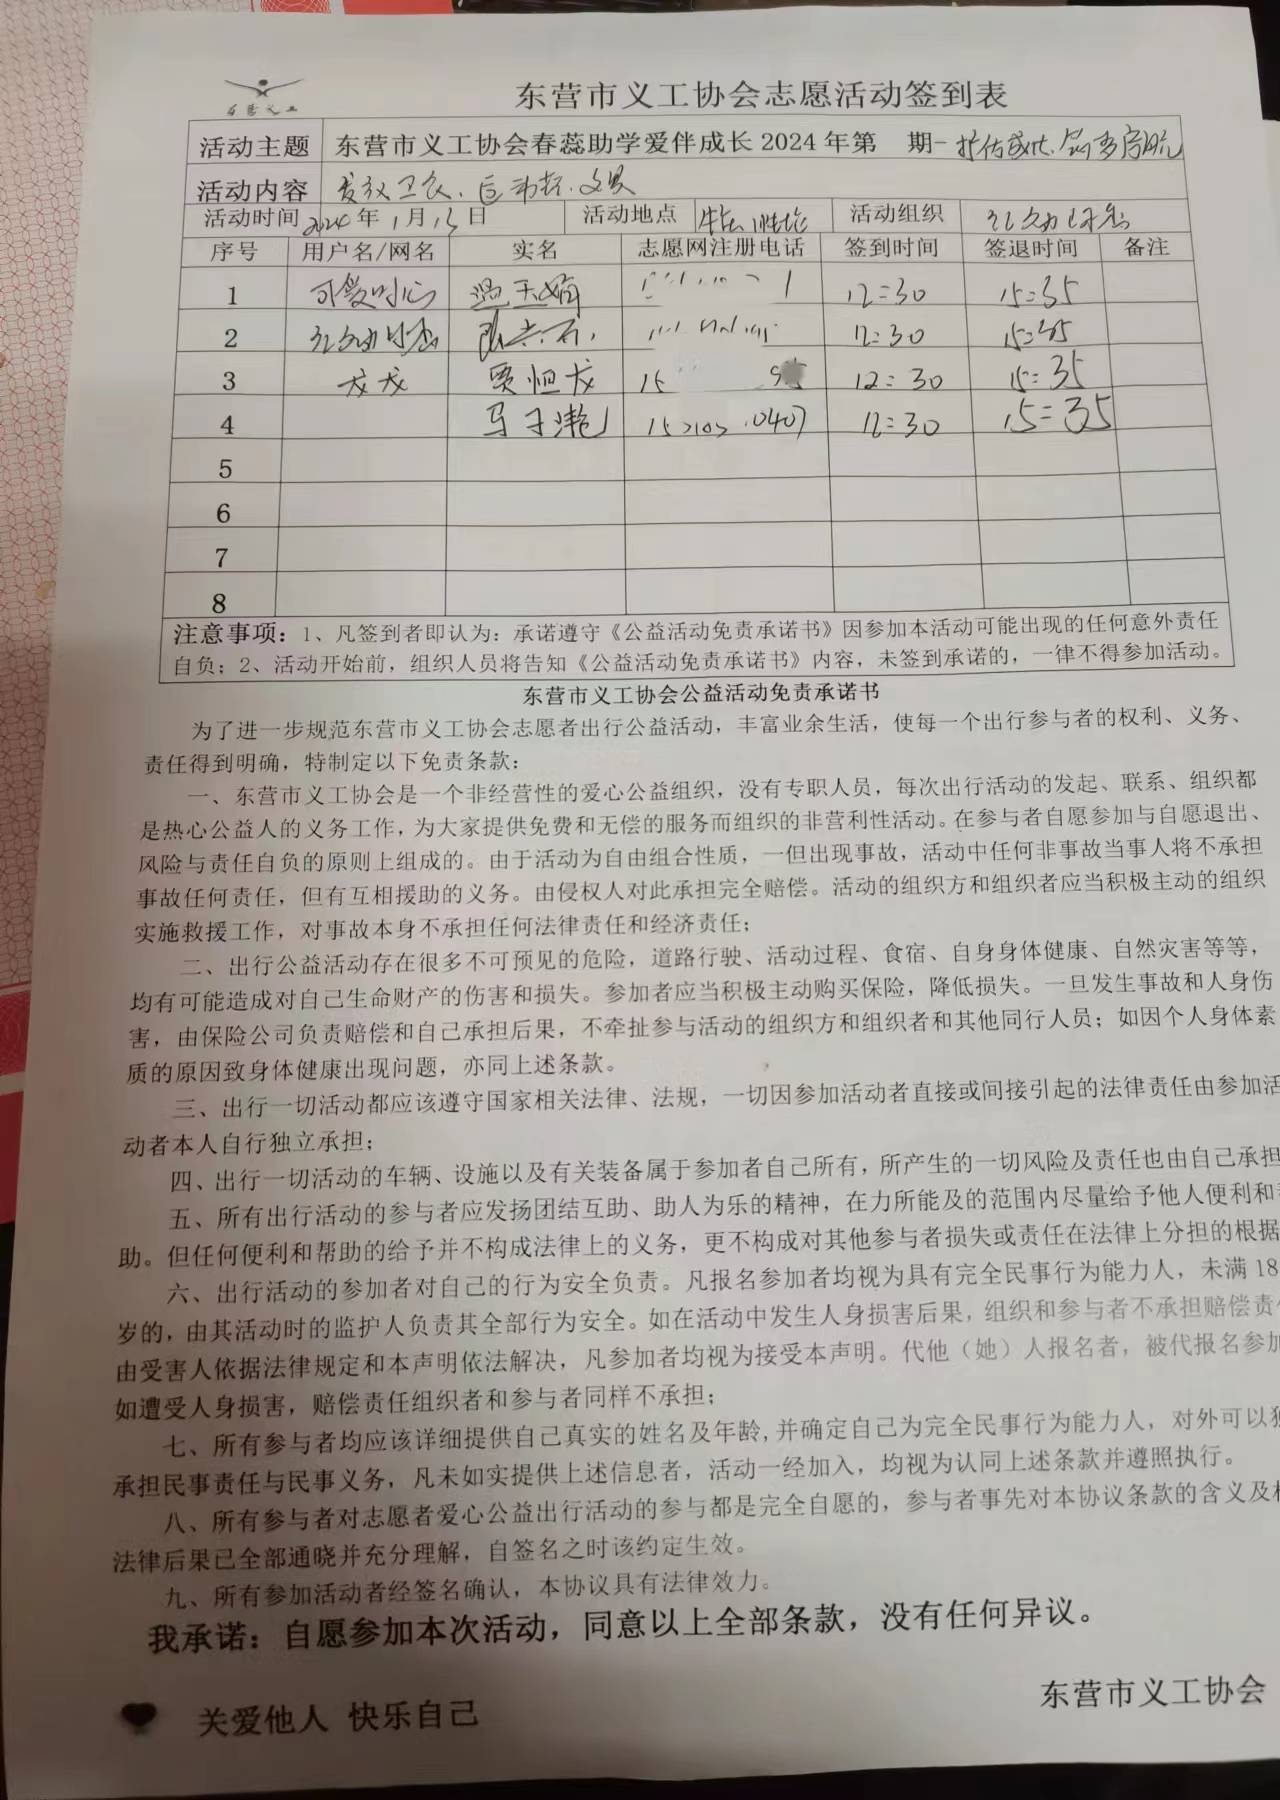 东营义工
东营市义工协会志愿活动签到表
活动主题 东营市义工协会春蕊助学爱伴成长 2024 年第 期-
活动内容 发放卫衣、运动鞋、文具
活动时间 2024 年 1 月 13 日 活动地点 活动组织
序号 用户名/网名 实名 志愿网注册电话 签到时间 签退时间 备注
1 可爱的心 12:30 15:35
2 12:30 15:35
3 龙龙 贾恒龙 15 12:30 15:35
4 马子滟 0407 12:30 15:35
5
6
7
8
注意事项：1、凡签到者即认为：承诺遵守《公益活动免责承诺书》因参加本活动可能出现的任何意外责任
自负；2、活动开始前，组织人员将告知《公益活动免责承诺书》内容，未签到承诺的，一律不得参加活动。
东营市义工协会公益活动免责承诺书
为了进一步规范东营市义工协会志愿者出行公益活动，丰富业余生活，使每一个出行参与者的权利、义务、
责任得到明确，特制定以下免责条款：
一、东营市义工协会是一个非经营性的爱心公益组织，没有专职人员，每次出行活动的发起、联系、组织都
是热心公益人的义务工作，为大家提供免费和无偿的服务而组织的非营利性活动。在参与者自愿参加与自愿退出、
风险与责任自负的原则上组成的。由于活动为自由组合性质，一但出现事故，活动中任何非事故当事人将不承担
事故任何责任，但有互相援助的义务。由侵权人对此承担完全赔偿。活动的组织方和组织者应当积极主动的组织
实施救援工作，对事故本身不承担任何法律责任和经济责任；
二、出行公益活动存在很多不可预见的危险，道路行驶、活动过程、食宿、自身身体健康、自然灾害等等，
均有可能造成对自己生命财产的伤害和损失。参加者应当积极主动购买保险，降低损失。一旦发生事故和人身伤
害，由保险公司负责赔偿和自己承担后果，不牵扯参与活动的组织方和组织者和其他同行人员；如因个人身体素
质的原因致身体健康出现问题，亦同上述条款。
三、出行一切活动都应该遵守国家相关法律、法规，一切因参加活动者直接或间接引起的法律责任由参加活
动者本人自行独立承担；
四、出行一切活动的车辆、设施以及有关装备属于参加者自己所有，所产生的一切风险及责任也由自己承担
五、所有出行活动的参与者应发扬团结互助、助人为乐的精神，在力所能及的范围内尽量给予他人便利和
助。但任何便利和帮助的给予并不构成法律上的义务，更不构成对其他参与者损失或责任在法律上分担的根据
六、出行活动的参加者对自己的行为安全负责。凡报名参加者均视为具有完全民事行为能力人，未满 18
岁的，由其活动时的监护人负责其全部行为安全。如在活动中发生人身损害后果，组织和参与者不承担赔偿责任
由受害人依据法律规定和本声明依法解决，凡参加者均视为接受本声明。代他（她）人报名者，被代报名参加
如遭受人身损害，赔偿责任组织者和参与者同样不承担；
七、所有参与者均应该详细提供自己真实的姓名及年龄,并确定自己为完全民事行为能力人，对外可以独
承担民事责任与民事义务，凡未如实提供上述信息者，活动一经加入，均视为认同上述条款并遵照执行。
八、所有参与者对志愿者爱心公益出行活动的参与都是完全自愿的，参与者事先对本协议条款的含义及相
法律后果已全部通晓并充分理解，自签名之时该约定生效。
九、所有参加活动者经签名确认，本协议具有法律效力。
我承诺：自愿参加本次活动，同意以上全部条款，没有任何异议。
东营市义工协会
关爱他人 快乐自己